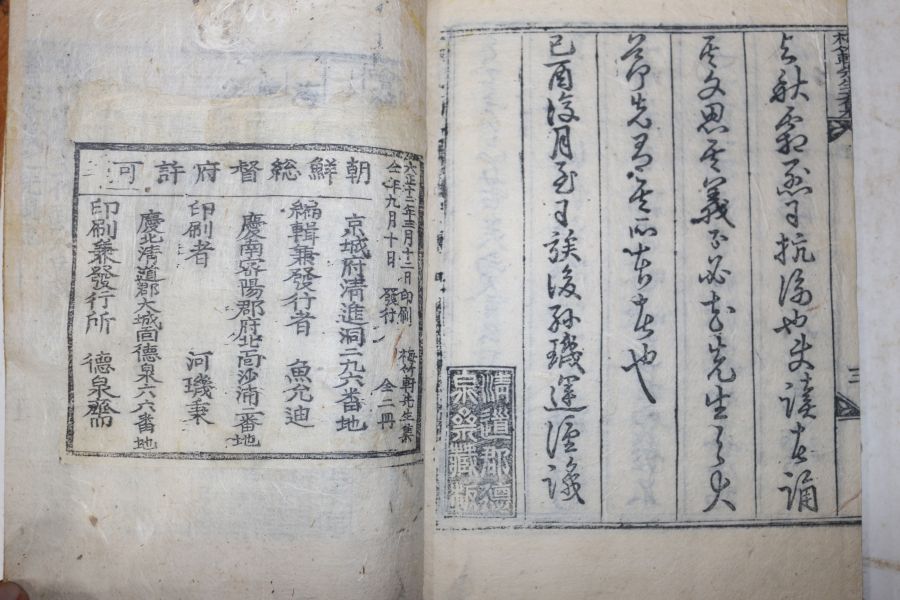 秋霜烈日抗 也夫讀 誦
其文思其義不必 先生之大
節先 其所 在也
己酉 月 後孫璣運謹識
清道郡德
泉齋藏板
三
朝鮮総督府許可
大正十二年 月十二日印刷
仝年九月十日 發行
梅竹軒先生集
全二冊
京城府清進洞二九六番地
編輯兼發行者 魚允迪
慶南密陽郡府北面沙浦二番地
印刷者 河璣秉
慶北清道郡大城面德泉六六番地
印刷兼發行所 德泉齋